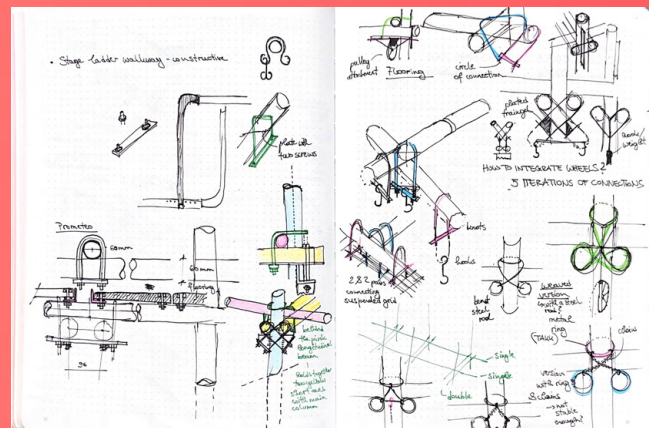 • Stage ladder walkway - constructive
plate with
two screws
Prometeo
60mm
60mm
flooring
behind
the pink
beam
Holds together
two yellow
short rods
with main
column
pulley
attachment
Flooring
circle
of connection
plated
HOW TO INTEGRATE WHEELS?
5 ITERATIONS OF CONNECTIONS
knots
hooks
2 & 2 pairs
connecting
suspended grid
bent
steel
rod
weaved
version
with a steel
rod?
metal
ring
(TALK)
single
single
double
version
with ring
& chains
→ not
stable
enough?